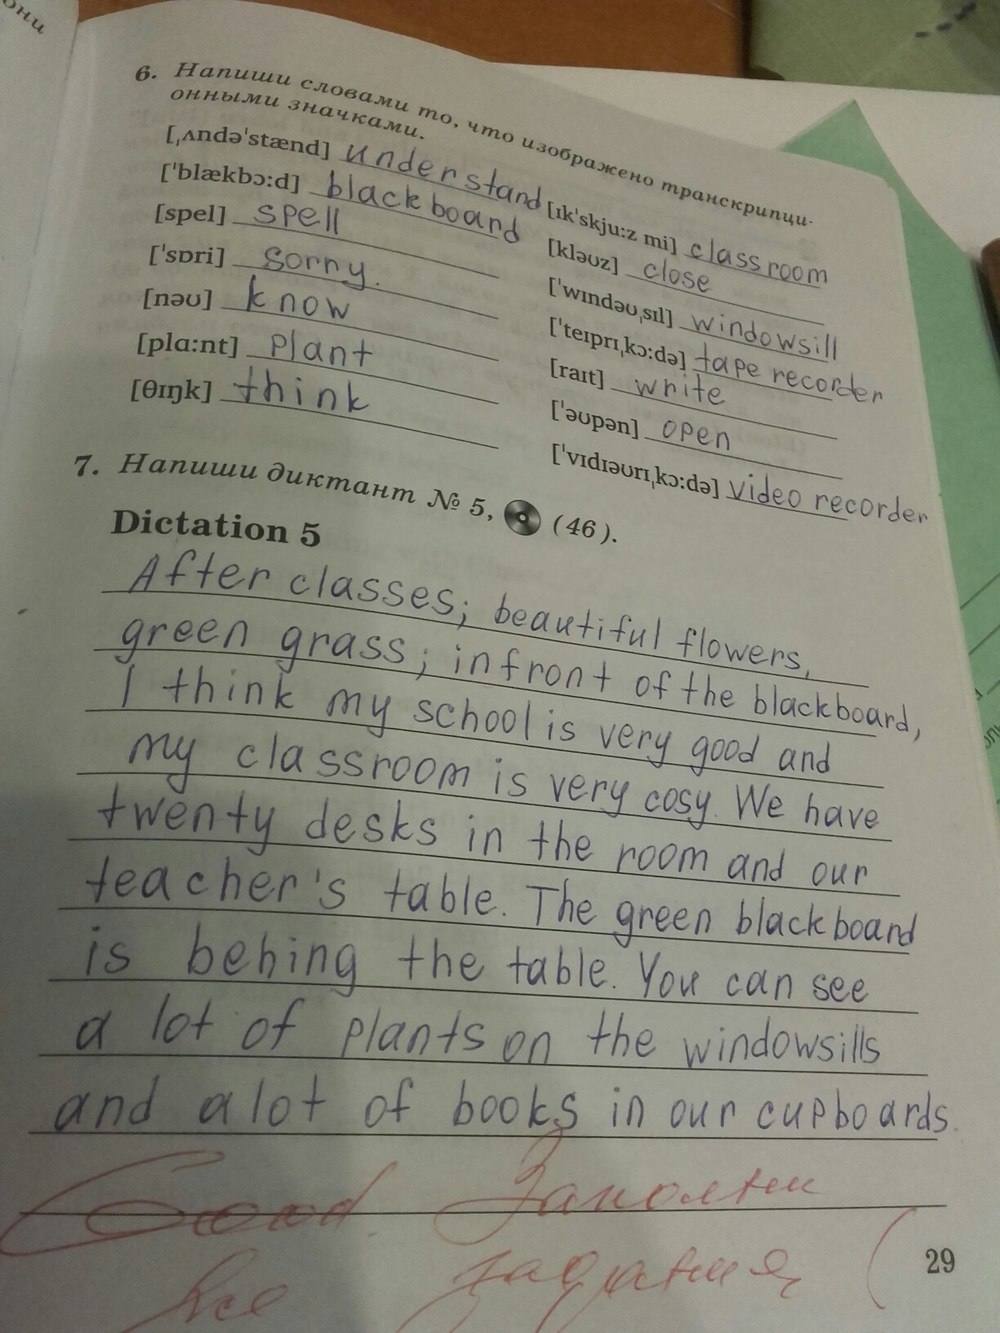 они
6. Напиши словами то, что изображено транскрипци-
онными значками.
[ˌʌndə'stænd] understand
['blækbɔ:d] blackboard
[spel] spell
['sɒri] sorry.
[nəʊ] know
[plɑ:nt] plant
[θɪŋk] think
[ɪk'skju:z mi] classroom
[kləʊz] close
['wɪndəʊˌsɪl] windowsill
['teɪprɪˌkɔ:də] tape recorder
[raɪt] write
['əʊpən] open
['vɪdɪəʊrɪˌkɔ:də] video recorder
7. Напиши диктант № 5, (46).
Dictation 5
After classes; beautiful flowers,
green grass; infront of the blackboard,
I think my school is very good and
my classroom is very cosy. We have
twenty desks in the room and our
teacher's table. The green blackboard
is behing the table. You can see
a lot of plants on the windowsills
and alot of books in our cupboards.
Good Заполни
все задания
29